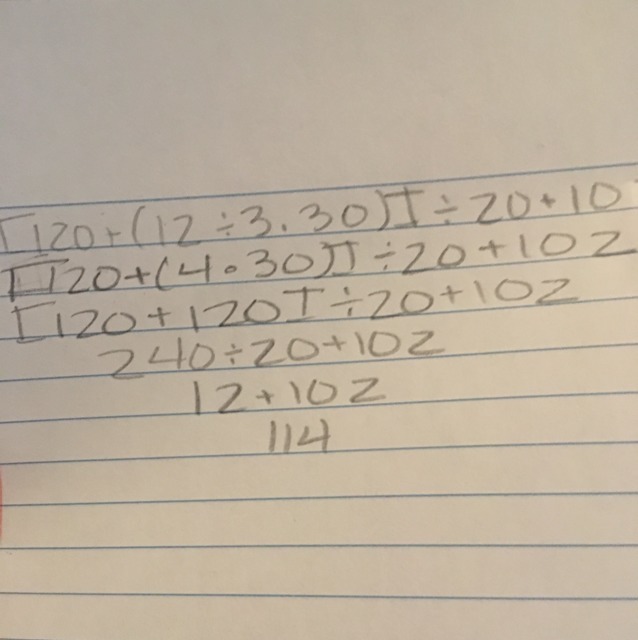 [120+(12÷3.30)]÷20+10
[120+(4•30)]÷20+102
[120+120]÷20+102
240÷20+102
12+102
114